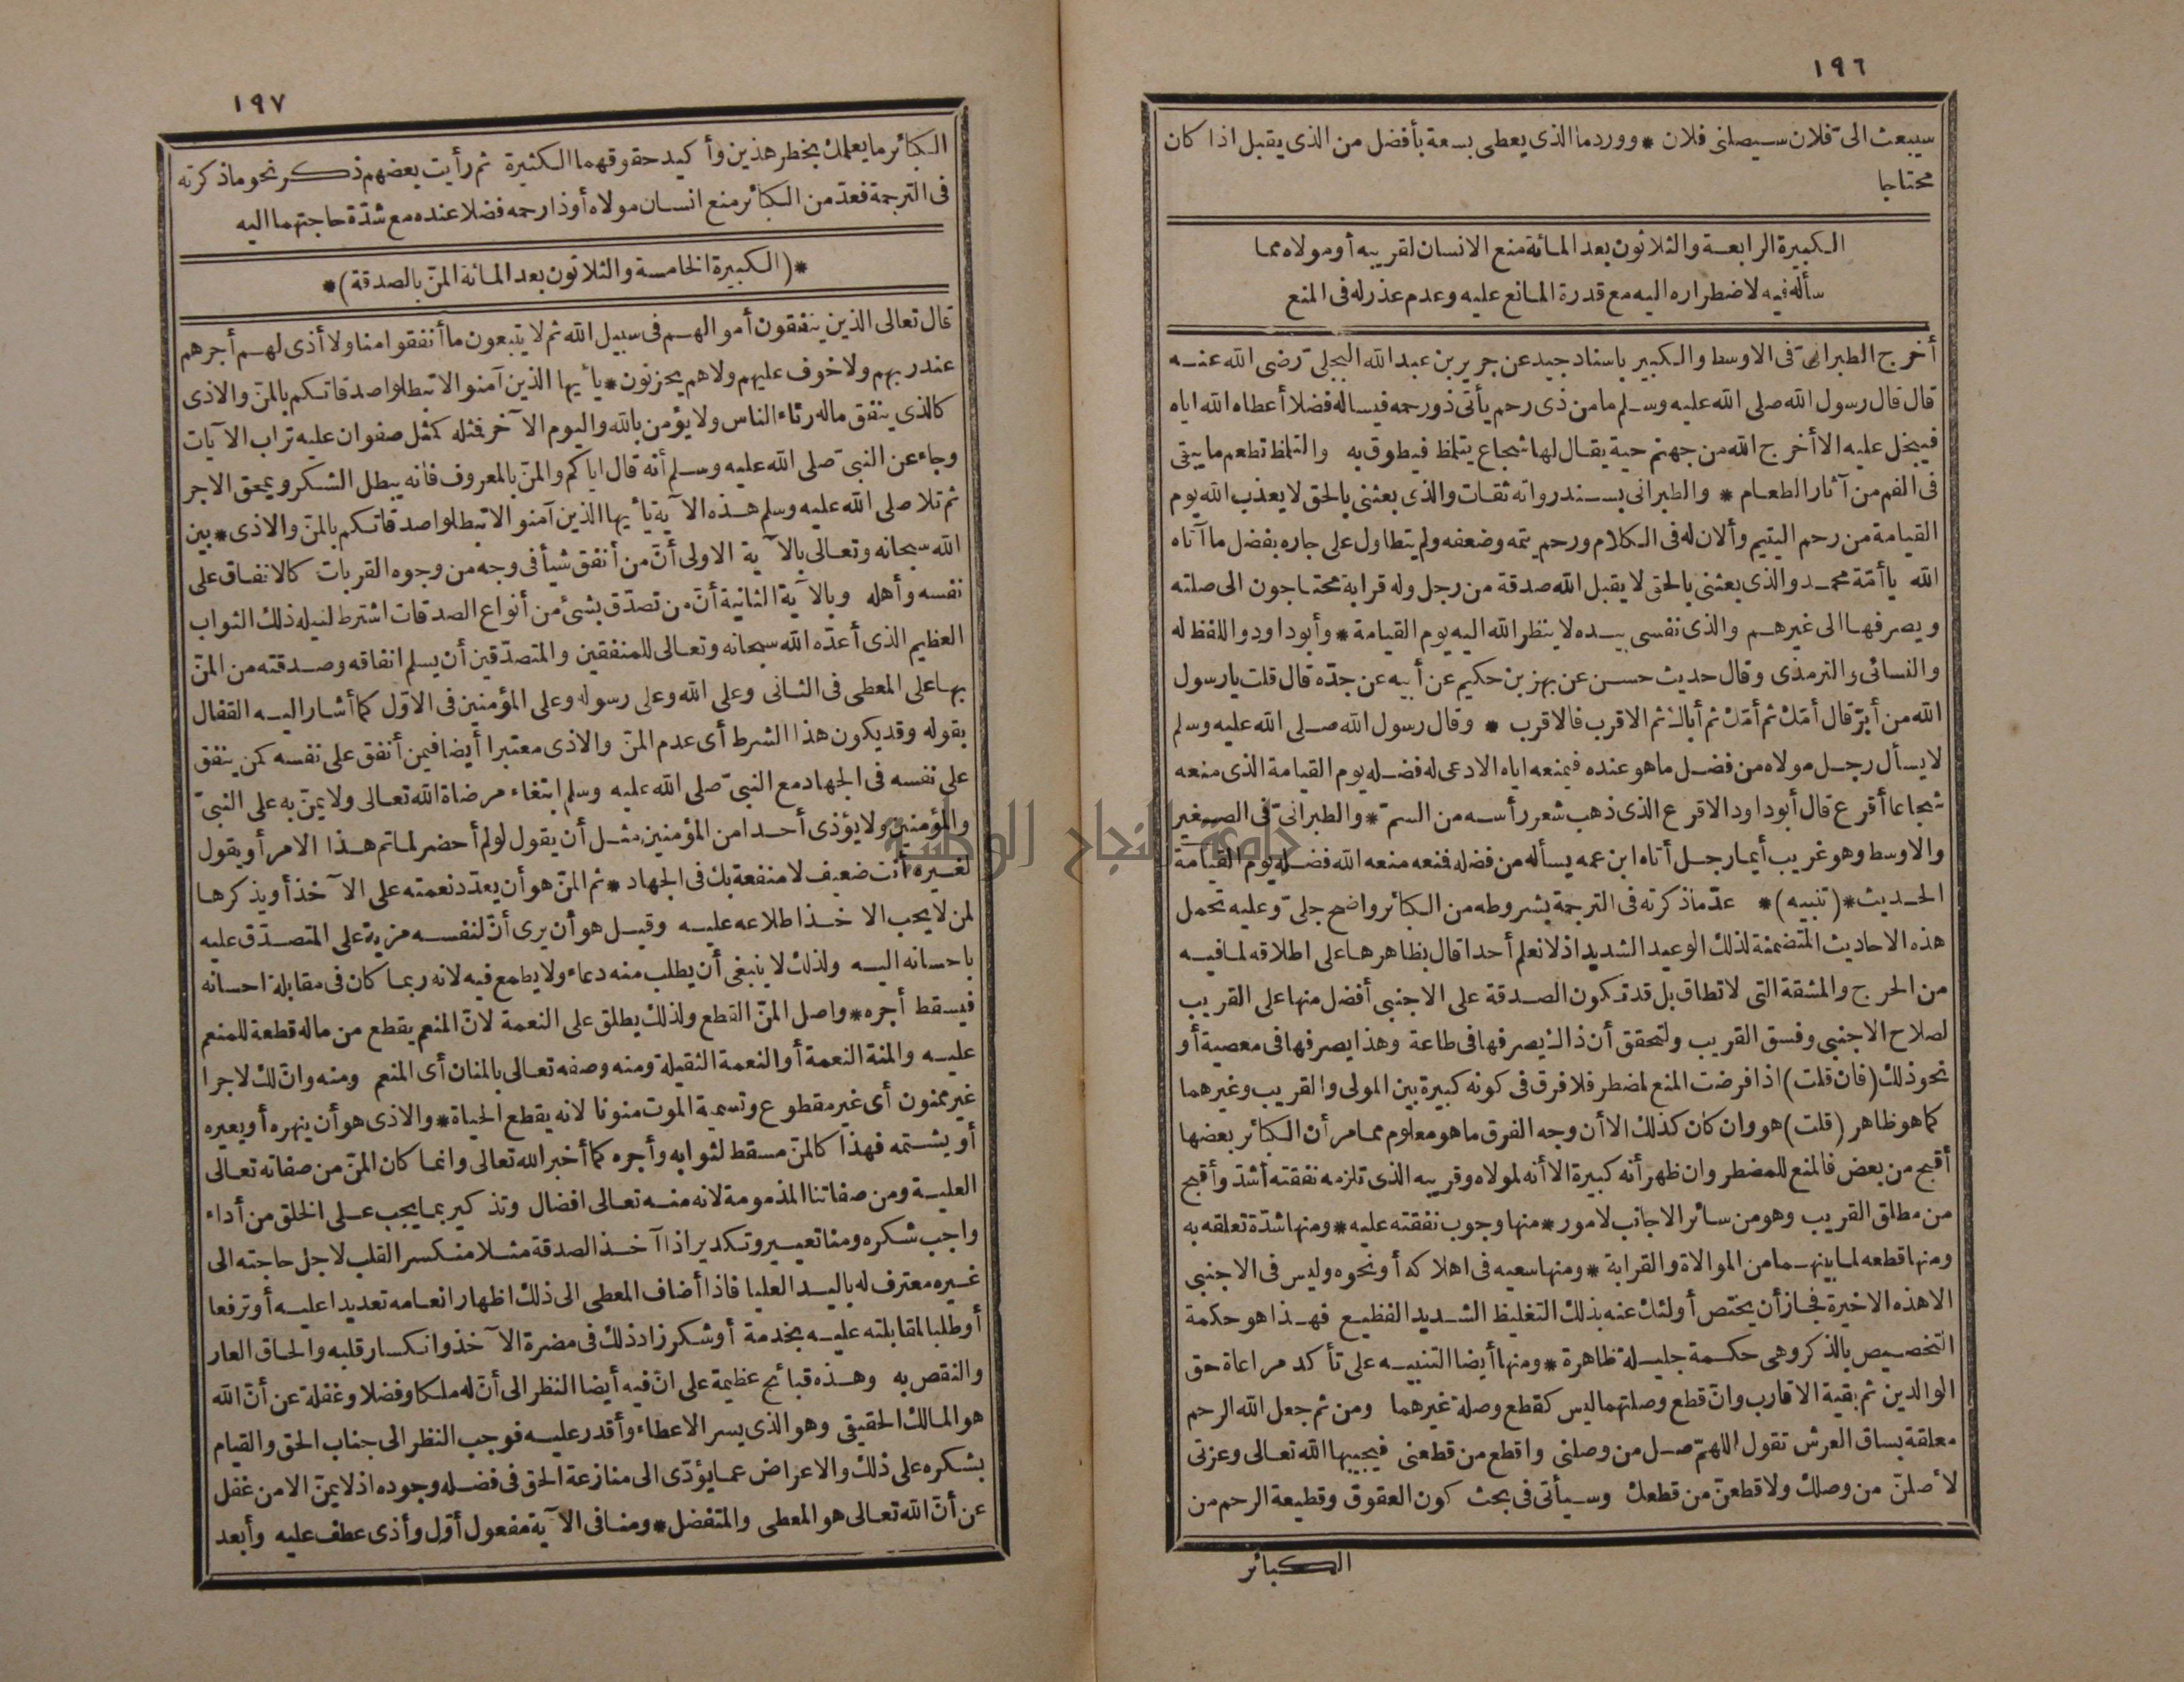 ١٩٦
سيبعث الىّ فلان سيصلنى فلان * وورد ما الذى يعطى بسعة بأفضل من الذى يقبل اذا كان
محتاجا
الكبيرة الرابعة والثلاثون بعد المائة منع الانسان لقريبه أو مولاه مما
سأله فيه لاضطراره اليه مع قدرة المانع عليه وعدم عذر له فى المنع
أخرج الطبرانىّ فى الاوسط والكبير باسناد جيد عن جرير بن عبد الله البجلىّ رضى الله عنه
قال قال رسول الله صلى الله عليه وسلم ما من ذى رحم يأتى ذو رحمه فيساله فضلا أعطاه الله اياه
فيبخل عليه الا أخرج الله من جهنم حية يقال لها شجاع يتلمظ فيطوق به والتلمظ تطعم ما يبقى
فى الفم من آثار الطعام * والطبرانى بسند رواته ثقات والذى بعثنى بالحق لا يعذب الله يوم
القيامة من رحم اليتيم وألان له فى الكلام ورحم يتمه وضعفه ولم يتطاول على جاره بفضل ما آتاه
الله يا أمّة محمد والذى بعثنى بالحق لا يقبل الله صدقة من رجل وله قرابة محتاجون الى صلته
ويصرفها الى غيرهم والذى نفسى بيده لا ينظر الله اليه يوم القيامة * وأبو داود واللفظ له
والنسائى والترمذى وقال حديث حسن عن بهز بن حكيم عن أبيه عن جدّه قال قلت يا رسول
الله من أبرّ قال أمّك ثم أمّك ثم أباك ثم الاقرب فالاقرب * وقال رسول الله صلى الله عليه وسلم
لا يسأل رجل مولاه من فضل ما هو عنده فيمنعه اياه الا دعى له فضله يوم القيامة الذى منعه
شجاعا أقرع قال أبو داود الاقرع الذى ذهب شعر رأسه من السمّ * والطبرانىّ فى الصغير
والاوسط وهو غريب أيما رجل أتاه ابن عمه يسأله من فضله فمنعه منعه الله فضله يوم القيامة
الحديث * (تنبيه) * عدّ ما ذكرته فى الترجمة بشروطه من الكبائر واضح جلىّ وعليه تحمل
هذه الاحاديث المتضمنة لذلك الوعيد الشديد اذ لا نعلم أحدا قال بظاهرها على اطلاقه لما فيه
من الحرج والمشقة التى لا تطاق بل قد تكون الصدقة على الاجنبى أفضل منها على القريب
لصلاح الاجنبى وفسق القريب ولتحقق أن ذاك يصرفها فى طاعة وهذا يصرفها فى معصية أو
نحو ذلك (فان قلت) اذا فرضت المنع لمضطر فلا فرق فى كونه كبيرة بين المولى والقريب وغيرهما
كما هو ظاهر (قلت) هو وان كان كذلك الا أن وجه الفرق ما هو معلوم مما مر أن الكبائر بعضها
أقبح من بعض فالمنع للمضطر وان ظهر أنه كبيرة الا أنه لمولاه وقريبه الذى تلزمه نفقته أشدّ وأقبح
من مطلق القريب وهو من سائر الاجانب لامور * منها وجوب نفقته عليه * ومنها شدّة تعلقه به
ومنها قطعه لما بينهما من الموالاة والقرابة * ومنها سعيه فى اهلاكه أو نحوه وليس فى الاجنبى
الا هذه الاخيرة فجاز أن يختص أولئك عنه بذلك التغليظ الشديد الفظيع فهذا هو حكمة
التخصيص بالذكر وهى حكمة جليلة ظاهرة * ومنها أيضا التنبيه على تأكد مراعاة حق
الوالدين ثم بقية الاقارب وانّ قطع وصلتهما ليس كقطع وصلة غيرهما ومن ثم جعل الله الرحم
معلقة بساق العرش تقول اللهمّ صل من وصلنى واقطع من قطعنى فيجيبها الله تعالى وعزتى
لأصلنّ من وصلك ولاقطعنّ من قطعك وسيأتى فى بحث كون العقوق وقطيعة الرحم من
الكبائر
١٩٧
الكبائر ما يعلمك بخطر هذين وأكيد حقوقهما الكثيرة ثم رأيت بعضهم ذكر نحو ما ذكرته
فى الترجمة فعدّ من الكبائر منع انسان مولاه أو ذا رحمه فضلا عنده مع شدّة حاجتهما اليه
* (الكبيرة الخامسة والثلاثون بعد المائة المنّ بالصدقة) *
قال تعالى الذين ينفقون أموالهم فى سبيل الله ثم لا يتبعون ما أنفقوا منا ولا أذى لهم أجرهم
عند ربهم ولا خوف عليهم ولا هم يحزنون * يأيها الذين آمنوا لا تبطلوا صدقاتكم بالمنّ والاذى
كالذى ينفق ماله رئاء الناس ولا يؤمن بالله واليوم الآخر فمثله كمثل صفوان عليه تراب الآيات
وجاء عن النبىّ صلى الله عليه وسلم أنه قال اياكم والمنّ بالمعروف فانه يبطل الشكر ويمحق الاجر
ثم تلا صلى الله عليه وسلم هذه الآية يأيها الذين آمنوا لا تبطلوا صدقاتكم بالمنّ والاذى * بين
الله سبحانه وتعالى بالآية الاولى أنّ من أنفق شيأ فى وجه من وجوه القربات كالانفاق على
نفسه وأهله وبالآية الثانية أنّ من تصدّق بشئ من أنواع الصدقات اشترط لنيله ذلك الثواب
العظيم الذى أعدّه الله سبحانه وتعالى للمنفقين والمتصدّقين أن يسلم انفاقه وصدقته من المنّ
بها على المعطى فى الثانى وعلى الله وعلى رسوله وعلى المؤمنين فى الاوّل كما أشار اليه القفال
بقوله وقد يكون هذا الشرط أى عدم المنّ والاذى معتبرا أيضا فيمن أنفق على نفسه كمن ينفق
على نفسه فى الجهاد مع النبىّ صلى الله عليه وسلم ابتغاء مرضاة الله تعالى ولا يمنّ به على النبىّ
والمؤمنين ولا يؤذى أحدا من المؤمنين مثل أن يقول لو لم أحضر لما تم هذا الامر أو يقول
لغيره أنت ضعيف لا منفعة بك فى الجهاد * ثم المنّ هو أن يعدّد نعمته على الآخذ أو يذكرها
لمن لا يحب الآخذ اطلاعه عليه وقيل هو أن يرى أنّ لنفسه مزية على المتصدّق عليه
باحسانه اليه ولذلك لا ينبغى أن يطلب منه دعاء ولا يطمع فيه لانه ربما كان فى مقابلة احسانه
فيسقط أجره * واصل المنّ القطع ولذلك يطلق على النعمة لانّ المنعم يقطع من ماله قطعة للمنعم
عليه والمنة النعمة أو النعمة الثقيلة ومنه وصفه تعالى بالمنان أى المنعم ومنه وانّ لك لاجرا
غير ممنون أى غير مقطوع وتسمية الموت منونا لانه يقطع الحياة * والاذى هو أن ينهره أو يعيره
أو يشتمه فهذا كالمنّ مسقط لثوابه وأجره كما أخبر الله تعالى وانما كان المنّ من صفاته تعالى
العلية ومن صفاتنا المذمومة لانه منه تعالى افضال وتذكير بما يجب على الخلق من أداء
واجب شكره ومنا تعيير وتكدير اذ آخذ الصدقة مثلا منكسر القلب لاجل حاجته الى
غيره معترف له باليد العليا فاذا أضاف المعطى الى ذلك اظهار انعامه تعديدا عليه أو ترفعا
أو طلبا لمقابلته عليه بخدمة أو شكر زاد ذلك فى مضرة الآخذ وانكسار قلبه والحاق العار
والنقص به وهذه قبائح عظيمة على انّ فيه أيضا النظر الى أنّ له ملكا وفضلا وغفلة عن أنّ الله
هو المالك الحقيقى وهو الذى يسر الاعطاء وأقدر عليه فوجب النظر الى جناب الحق والقيام
بشكره على ذلك والاعراض عما يؤدّى الى منازعة الحق فى فضله وجوده اذ لا يمنّ الا من غفل
عن أنّ الله تعالى هو المعطى والمتفضل * ومنا فى الآية مفعول أوّل وأذى عطف عليه وأبعد
جامعة النجاح الوطنية